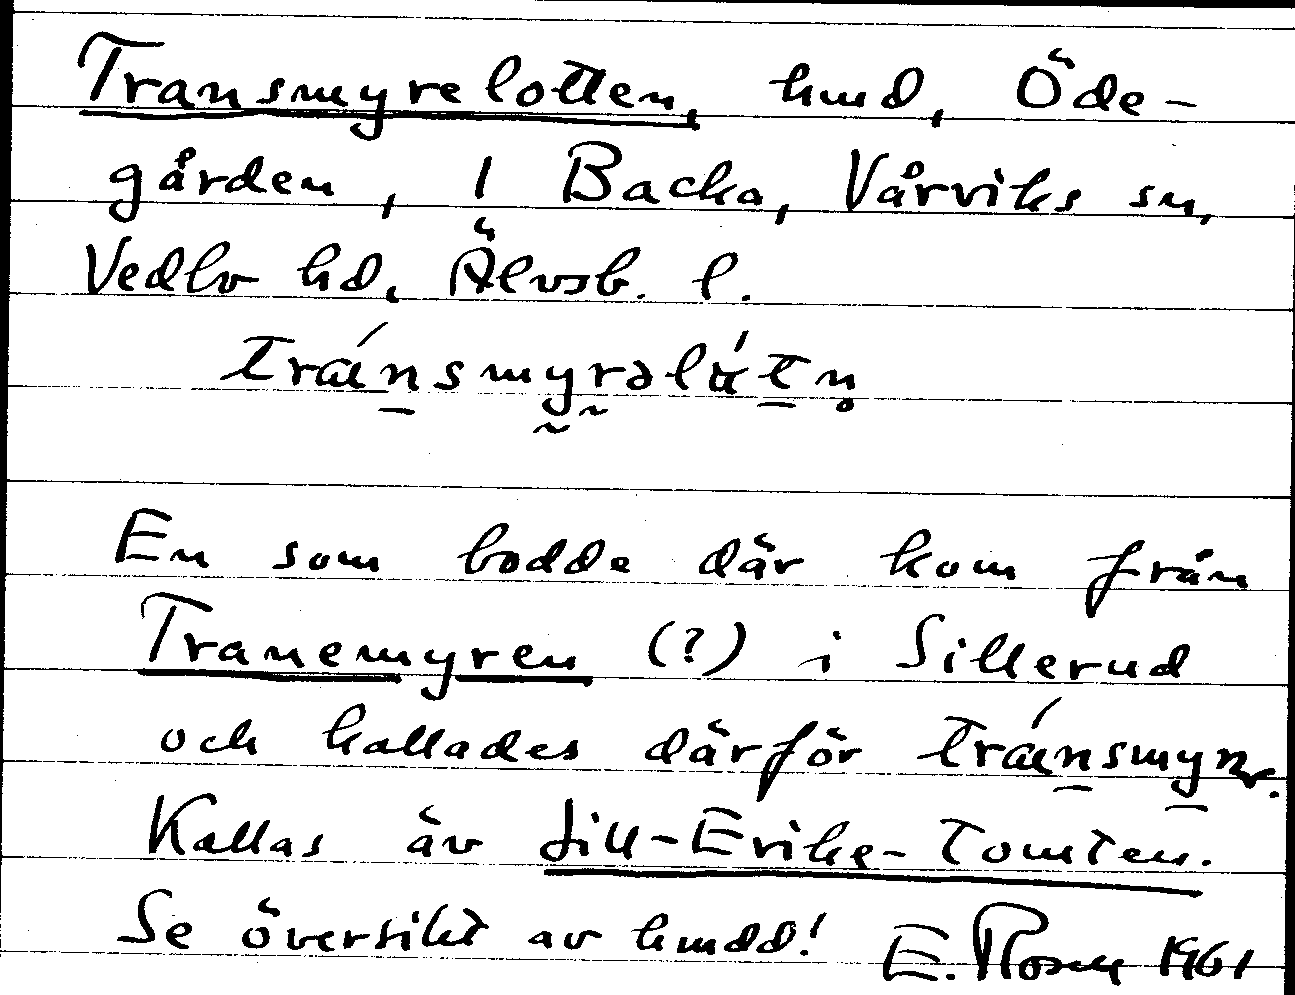 Transmyrelotten, hmd, Öde-
gården, 1 Backa, Vårviks sn,
Vedbo hd, Älvsb. l.
tránsmyrəlútn̥
En som bodde där kom från
Tranemyren (?) i Sillerud
och kallades därför
Kallas äv Lill-Erike-Tomten.
Se översikt av hmdd! E. 1961